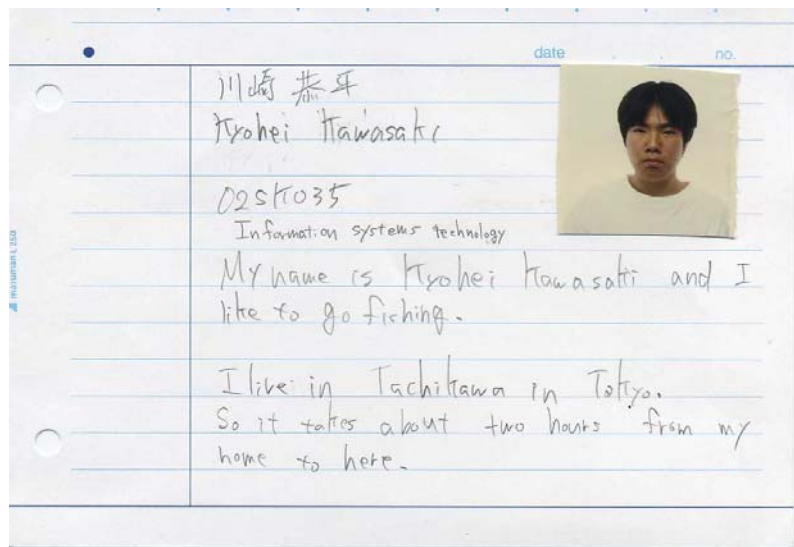 date . . no.
川崎 恭平
Kyohei Kawasaki
02SK035
Information systems technology
My name is Kyohei Kawasaki and I
like to go fishing.
I live in Tachikawa in Tokyo.
So it takes about two hours from my
home to here.
maruman L 250